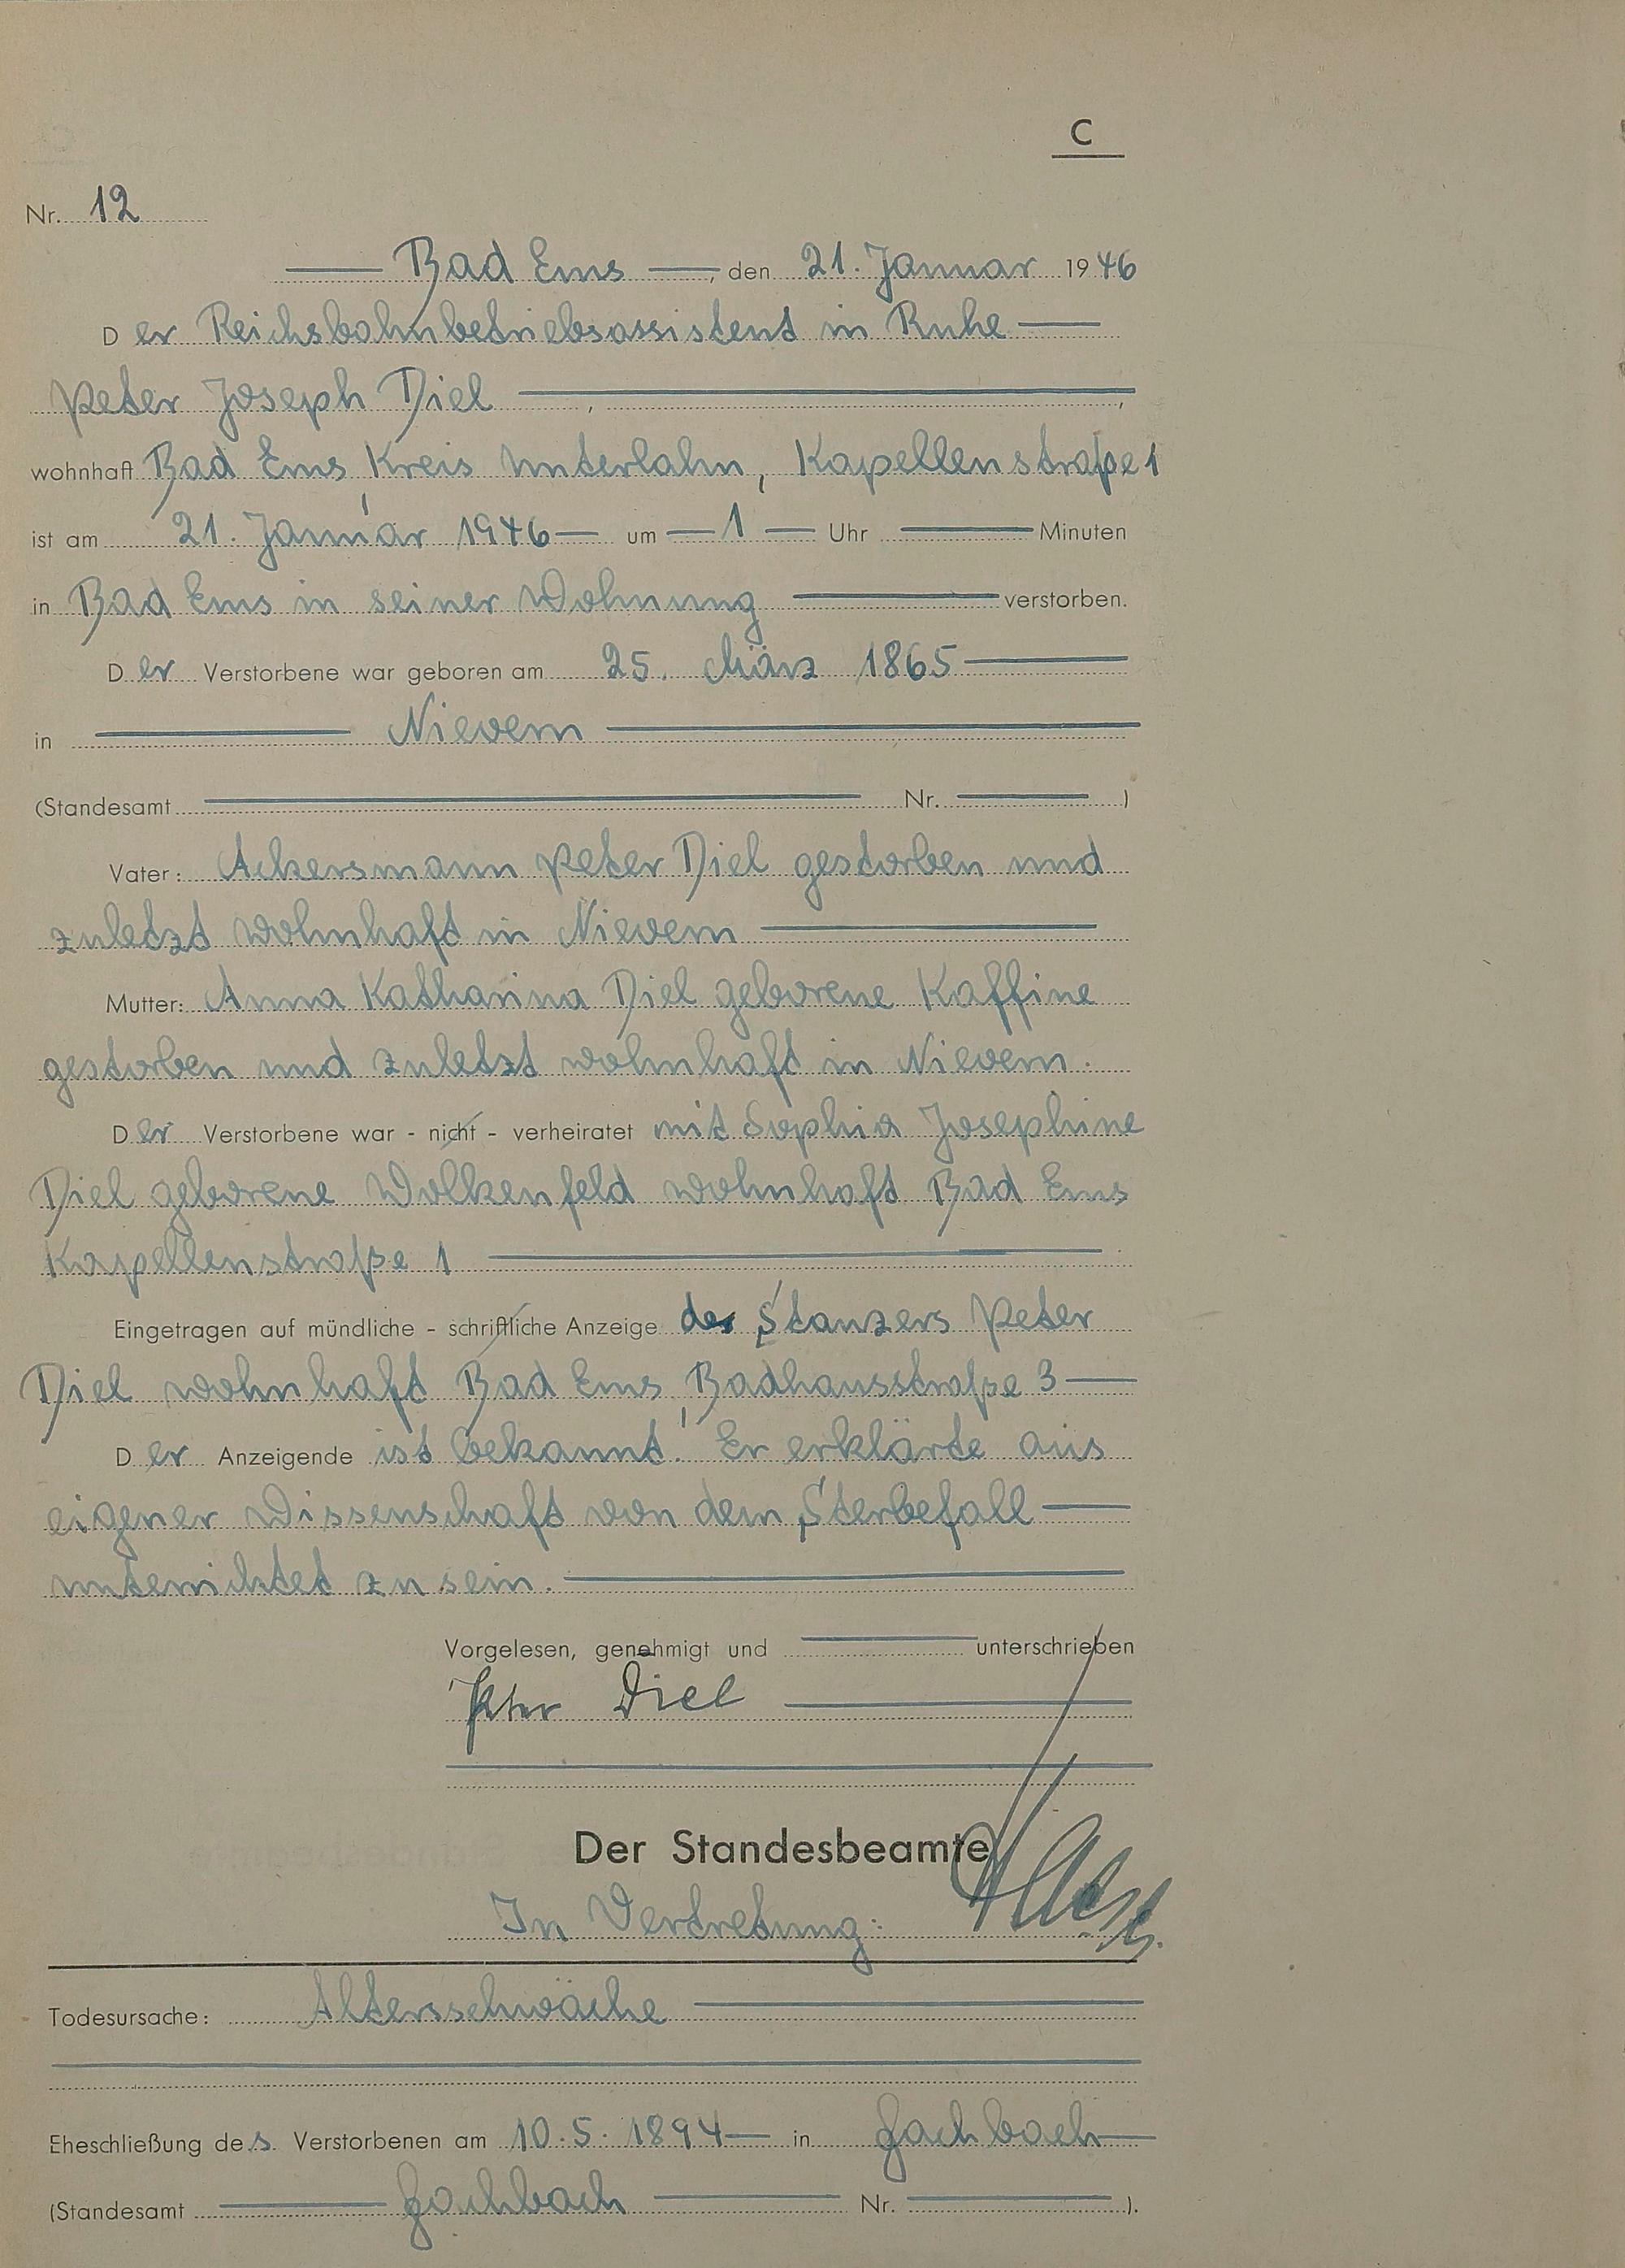 C
Nr. 12
Bad Ems, den 21. Januar 1946
Der Reichsbahnbetriebsassistent in Ruhe
Peter Joseph Diel , ,
wohnhaft Bad Ems, Kreis Unterlahn, Kapellenstraße 1
ist am 21. Januar 1946 um 1 Uhr Minuten
in Bad Ems in seiner Wohnung verstorben.
Der Verstorbene war geboren am 25. März 1865
in Nievern
(Standesamt Nr. )
Vater: Ackersmann Peter Diel gestorben und
zuletzt wohnhaft in Nievern
Mutter: Anna Katharina Diel geborene Kaffine
gestorben und zuletzt wohnhaft in Nievern.
Der Verstorbene war - nicht - verheiratet mit Sophia Josephine
Diel geborene Wolkenfeld wohnhaft Bad Ems
Kapellenstraße 1
Eingetragen auf mündliche - schriftliche Anzeige des Stanzers Peter
Diel wohnhaft Bad Ems, Badhausstraße 3
Der Anzeigende ist bekannt. Er erklärte aus
eigener Wissenschaft von dem Sterbefall
unterrichtet zu sein.
Vorgelesen, genehmigt und unterschrieben
Peter Diel
Der Standesbeamte
In Vertretung:
Todesursache: Altersschwäche
Eheschließung des Verstorbenen am 10.5.1894 in Fachbach
(Standesamt Fachbach Nr. ).